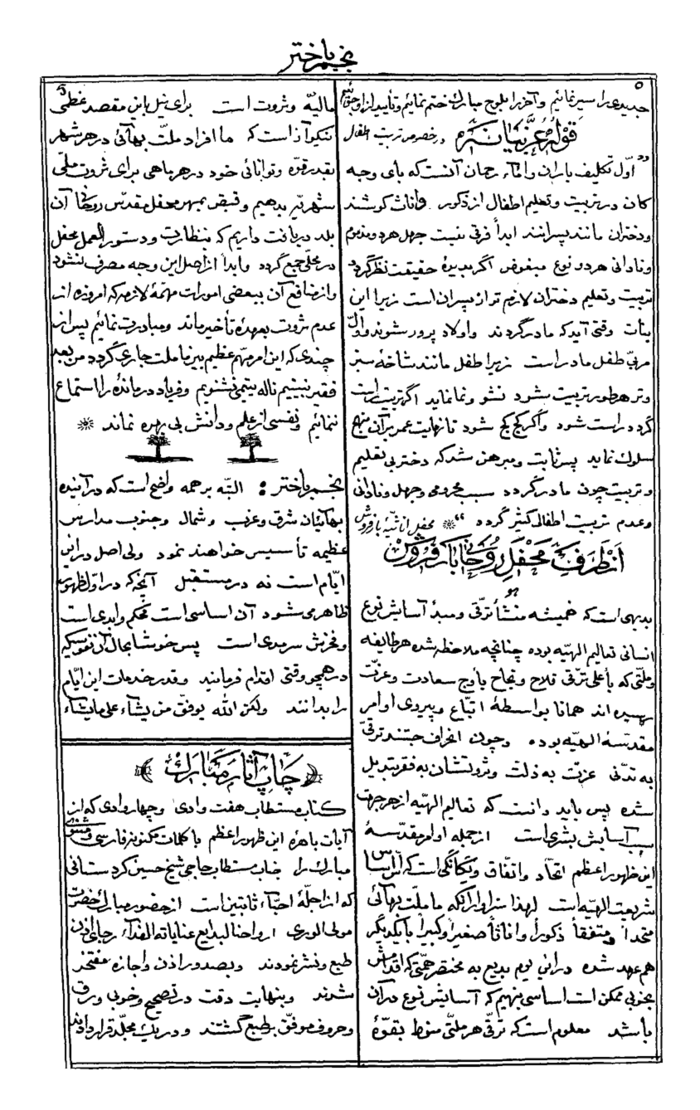 نجم باختر
۵
جدیدی را سیر نمائیم و آخر را بلوح مبارک ختم نمائیم و تأیید از او جوئیم
قوله عزّ بیانه در خصوص تربیت اطفال
"اوّل تکلیف یاران و اماء رحمان آنست که بای وجه
کان در تربیت و تعلیم اطفال از ذکور و اناث کوشند
و دختران مانند پسرانند ابداً فرقی نیست جهل هر دو مذموم
و نادانی هر دو نوع مبغوض اگر بدیدهٔ حقیقت نظر گردد
تربیت و تعلیم دختران لازم‌تر از پسران است زیرا این
بنات وقتی آید که مادر گردند و اولاد پرور شوند و اوّل
مربّی طفل مادر است زیرا طفل مانند شاخهٔ سبز
و تر هر طور تربیت شود نشو و نما نماید اگر تربیت راست
گردد راست شود و اگر کج کج شود تا نهایت عمر بر آن منهج
سلوک نماید پس ثابت و مبرهن شد که دختر بی تعلیم
و تربیت چون مادر گردد سبب محرومی و جهل و نادانی
و عدم تربیت اطفال کثیر گردد" محفل اناثیهٔ بارفروش
از طرف محفل روحانی بارفروش
هو
بدیهی است که همیشه منشأ ترقّی و مبدأ آسایش نوع
انسانی تعالیم الهیّه بوده چنانچه ملاحظه شده هر طایفه
و ملّتی که بأعلی ترقّی فلاح و نجاح باوج سعادت و عزّت
رسیده اند همانا بواسطهٔ اتّباع و پیروی اوامر
مقدّسهٔ الهیّه بوده و چون انحراف جستند ترقّی
به تدنّی عزّت به ذلّت و ثروتشان به فقر تبدیل
شده پس باید دانست که تعالیم الهیّه از هر جهت
سبب آسایش بشری است از جمله اوامر مقدّسهٔ
این ظهور اعظم اتّحاد و اتّفاق و یگانگی است که اسّ اساس
شریعت الهیّه است لهذا سزاوار آنکه ما ملّت بهائی
متّحداً و متّفقاً ذکوراً و اناثاً صغیراً و کبیراً با یکدیگر
هم عهد شده در این یوم بدیع به مختصر همّتی که اقدامش
بخوبی ممکن است اساسی بنهیم که آسایش نوع در آن
باشد معلوم است که ترقّی هر ملّتی منوط بقوّهٔ
مالیّه و ثروت است برای نیل باین مقصد عظمی
نیکو آن است که ما افراد ملّت بهائی در هر شهر
بقدر قوّه و توانائی خود در هر ماهی برای ثروت ملّی
شهریّه بدهیم و قبض بمهر محفل مقدّس روحانی آن
بلد دریافت داریم که بنظارت و دستور العمل محفل
در محلّی جمع گردد و ابداً از اصل این وجه مصرف نشود
و از منافع آن ببعضی امورات مهمّهٔ لازمه که امروزه از
عدم ثروت بعهدهٔ تأخیر ماند و مبادرت نمائیم پس از
چندی که این امر مهمّ عظیم بین ما ملّت جاری گردد من بعد
فقیر نبینیم ناله یتیمی نشنویم و فریاد درمانده را استماع
ننمائیم و نفسی از علم و دانش بی بهره نماند
نجم باختر: البتّه بر همه واضح است که در آینده
بهائیان شرق و غرب و شمال و جنوب مدارس
عظیمه تأسیس خواهند نمود ولی اصل در این
ایّام است نه در مستقبل آنچه که در اوّل ظهور
ظاهر می شود آن اساسی است محکم و ابدی است
و فخرش سرمدی است پس خوشا بحال آن نفوسیکه
در همچو وقتی اقدام فرمایند و قدر خدمات این ایّام
را بدانند ولکن الله یوفّق من یشاء علی ما یشاء
چاپ آثار مبارک
کتاب مستطاب هفت وادی و چهار وادی که از
آیات باهرهٔ این ظهور اعظم با کلمات مکنونهٔ فارسی و مثنوی
مبارک را جناب مستطاب حاجی شیخ حسین کردستانی
که از اجلّهٔ احبّاء ثابتین است از حضور مبارک حضرت
مولی الوری ارواحنا لبدایع عنایاته الفداء رجای اذن
طبع و نشر نمودند و بصدور اذن و اجازه مفتخر
شدند و بنهایت دقّت در تصحیح و خوبی ورق
و حروف موفّق بر طبع گشتند و در یک مجلّد قرار دادند